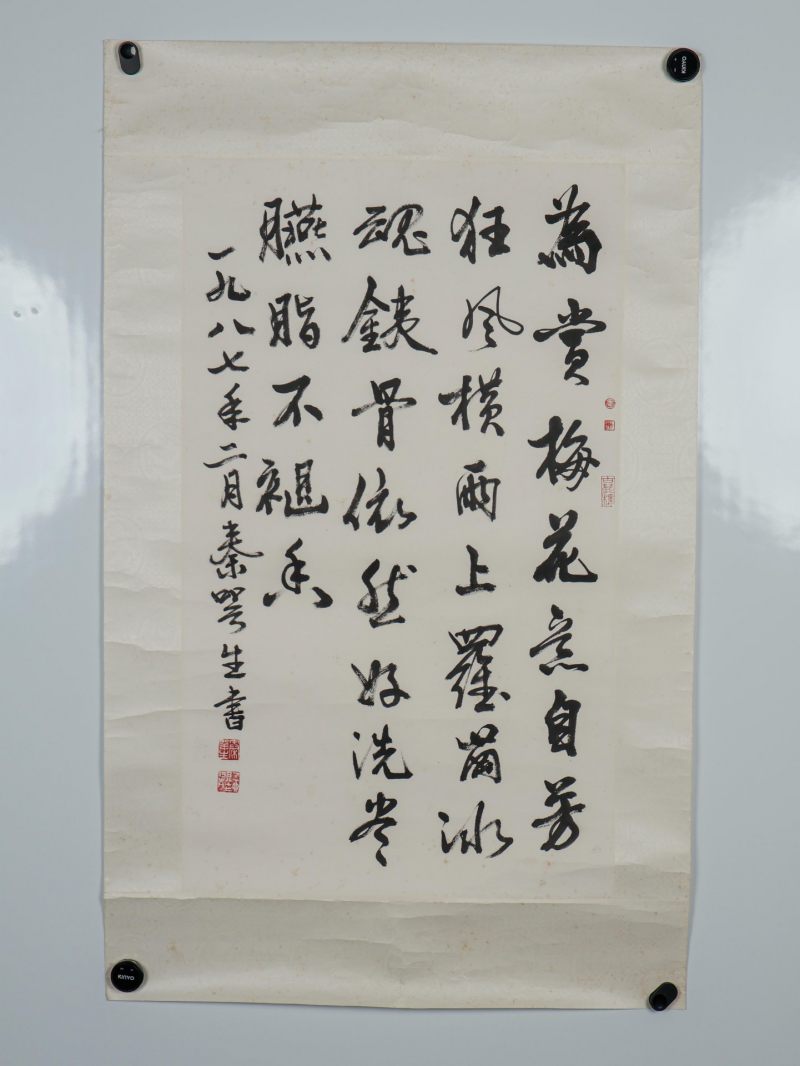 為賞梅花意自芳
狂風橫雨上羅崗冰
魂銕骨依然好洗尽
臙脂不褪香
一九八七年二月秦咢生書
KINYO
KINYO